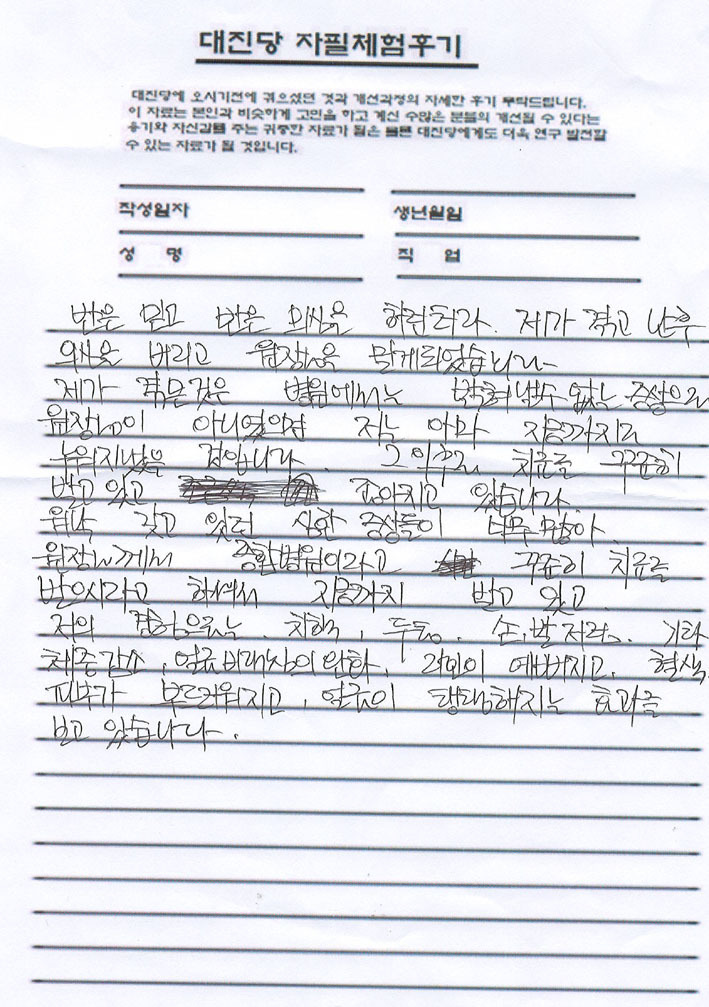 대진당 자필체험후기
대진당에 오시기전에 겪으셨던 것과 개선과정의 자세한 후기 부탁드립니다.
이 자료는 본인과 비슷하게 고민을 하고 계신 수많은 분들의 개선될 수 있다는
용기와 자신감을 주는 귀중한 자료가 됨은 물론 대진당에게도 더욱 연구 발전할
수 있는 자료가 될 것입니다.
작성일자 생년월일
성 명 직 업
믿고 의심을 하지마라. 제가 겪고 난후
의심을 버리고 원장님을 믿게되었습니다
제가 겪은것은 병원에서는 없는 증상으로
원장님이 아니었으면 저는 아마 지금까지도
누워지냈을 겁니다. 그 이후로 치료를 꾸준히
받고 있고 좋아지고 있습니다.
워낙 갖고 있던 심한 증상들이 너무 많아
원장님께서 종합병원이라고 꾸준히 치료를
받으시라고 하셔서 지금까지 받고 있고
저의 경험으로는 치핵, 두통, 손,발 저림. 기타
체중감소, 얼굴비대칭의 완화, 라인이 예뻐지고. 혈색,
피부가 부드러워지고, 얼굴이 탱탱해지는 효과를
보고 있습니다.